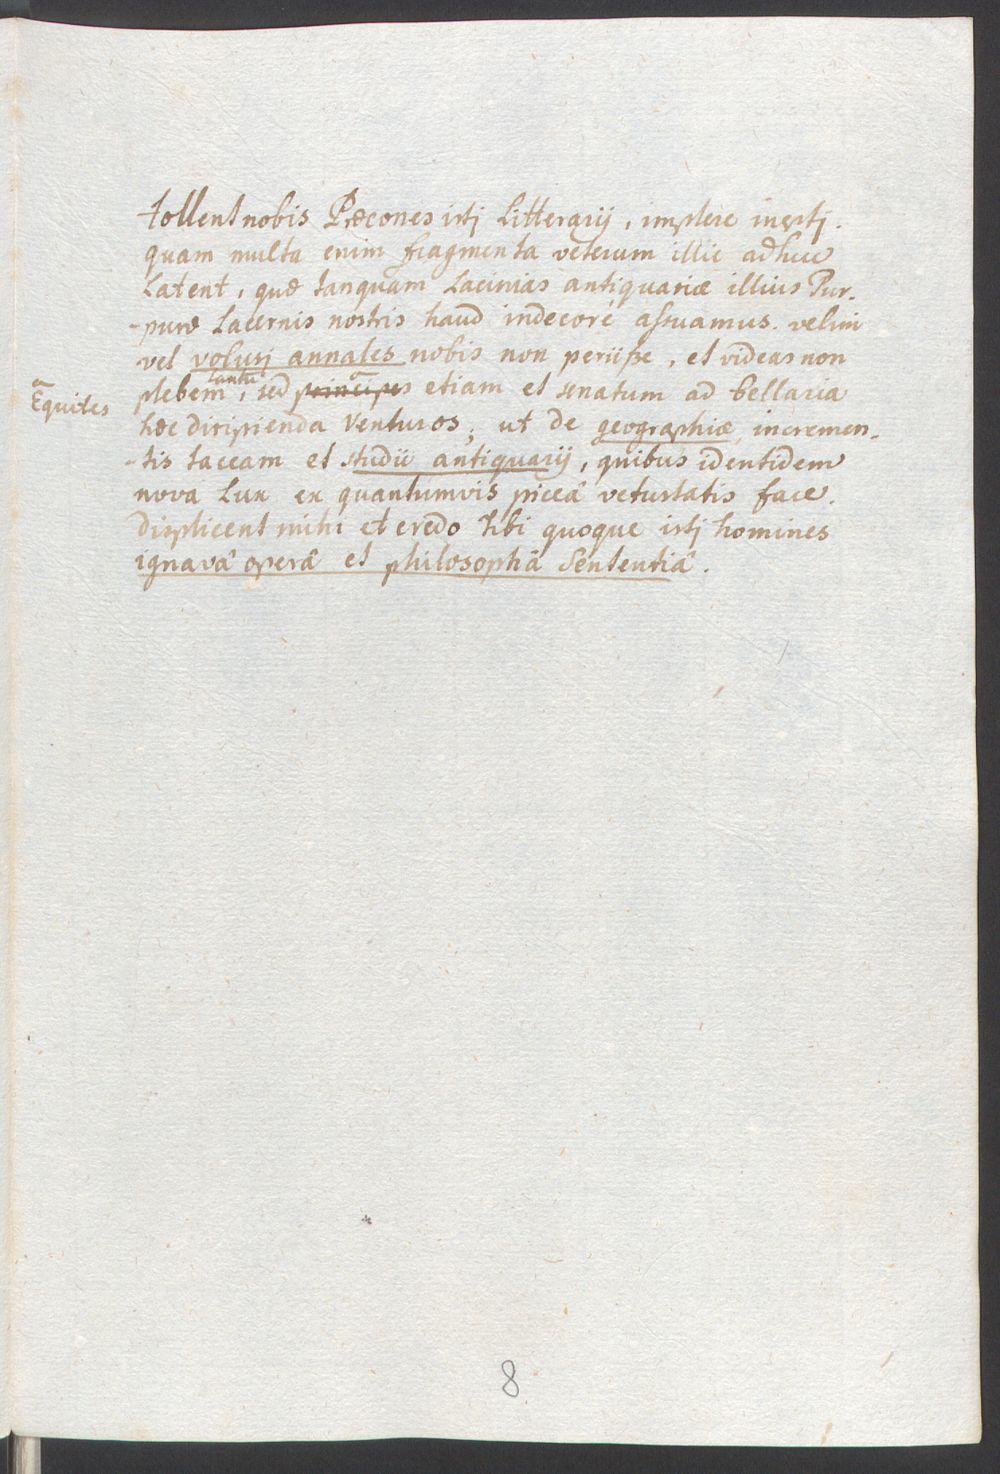 tollent nobis Præcones istj Litterarij, implere ineptj.
quam multa enim fragmenta veterum illic adhuc
Latent, quæ tanquam Lacinias antiquariæ illius Pur-
-puræ Lacernis nostris haud indecorè assuamus. velim
vel volusj annales nobis non periisse, et videas non
plebem tantū, sed principes etiam et senatum ad bellaria
Equites
hæc diripienda Venturos; ut de geographiæ incremen-
-tis taceam et studii antiquarij, quibus identidem
nova Lux ex quantumvis piceâ vetustatis face.
Displicent mihi et credo tibi quoque istj homines
ignavâ operâ et philosophâ Sententiâ.
8